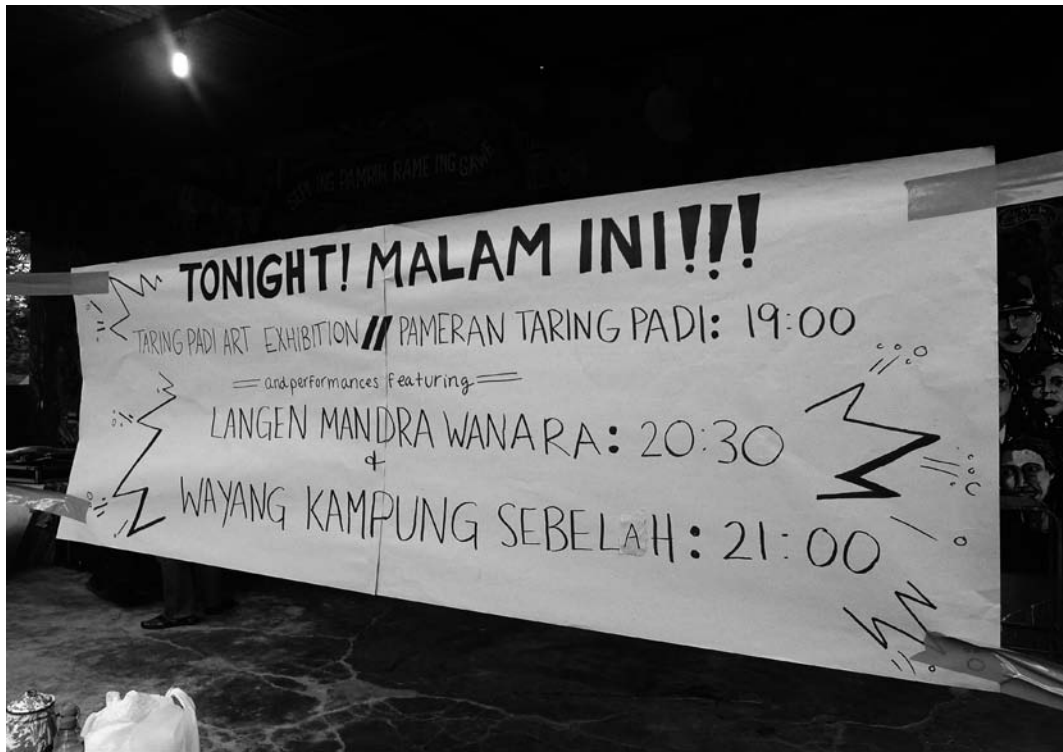 TONIGHT! MALAM INI!!!
TARING PADI ART EXHIBITION // PAMERAN TARING PADI: 19:00
and performances featuring
LANGEN MANDRA WANARA: 20:30
&
WAYANG KAMPUNG SEBELAH: 21:00